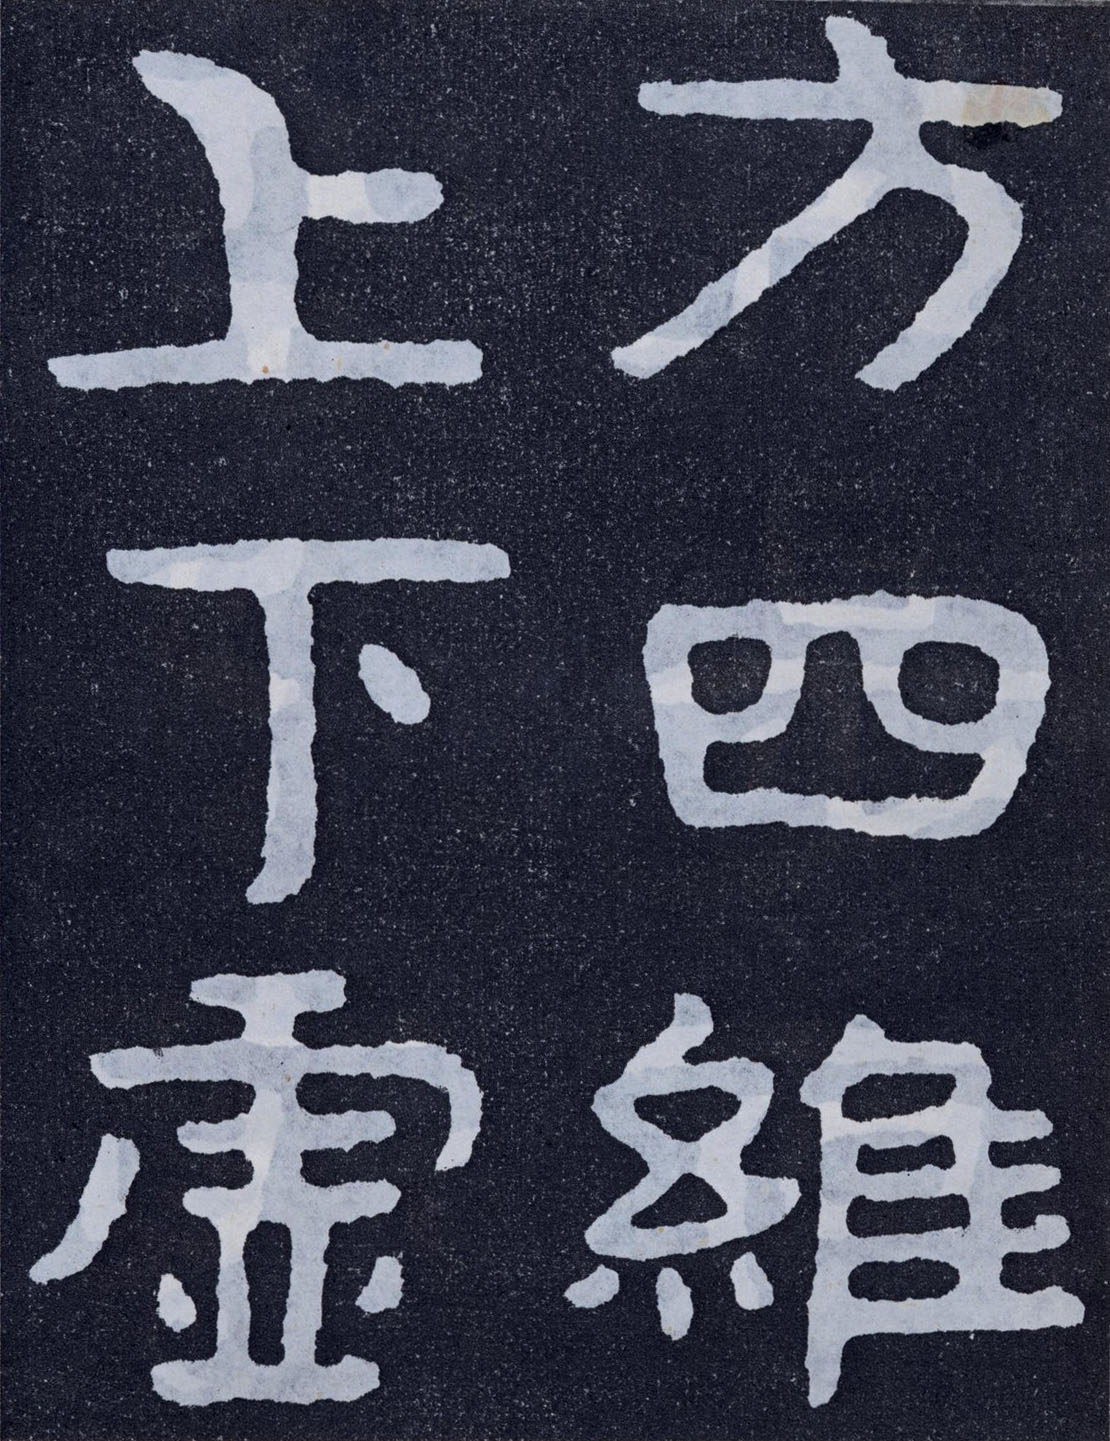 方四維
上下虛